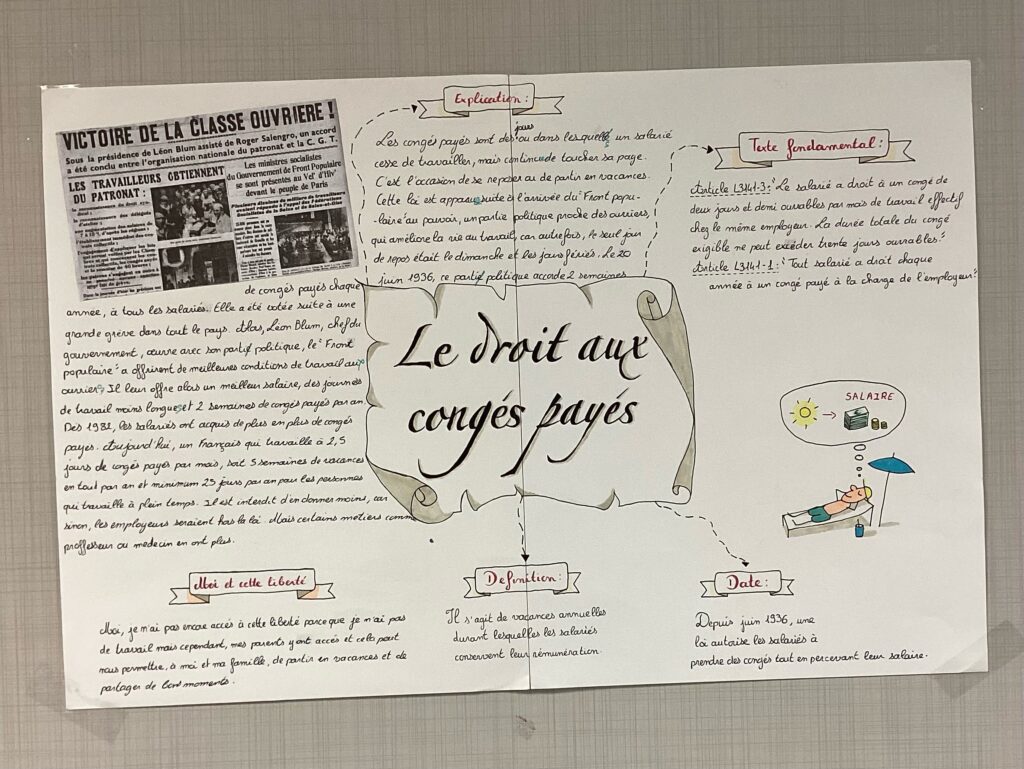 VICTOIRE DE LA CLASSE OUVRIERE !
Sous la présidence de Léon Blum assisté de Roger Salengro, un accord
a été conclu entre l'organisation nationale du patronat et la C. G. T.
LES TRAVAILLEURS OBTIENNENT
DU PATRONAT :
Les ministres socialistes
du Gouvernement de Front Populaire
se sont présentés au Vel' d'Hiv'
devant le peuple de Paris
Explication:
Les congés payés sont des jours ou dans lesquelle un salarié
cesse de travailler, mais continue de toucher sa page.
C'est l'occasion de se reposer ou de partir en vacances.
Cette loi est apparue suite à l'arrivée du "Front popu-
laire au pouvoir, un partie politique proche des ouvriers
qui améliore la vie au travail, car autrefois, le seul jour
de repos était le dimanche et les jours fériés. Le 20
juin 1936, ce parti politique accorde 2 semaines
de congés payés chaque
année, à tous les salariés. Elle a été votée suite à une
grande grève dans tout le pays. Alors, Léon Blum, chef du
gouvernement, œuvre avec son parti politique, le "Front
populaire" a offrirent de meilleures conditions de travail aux
ouvriers. Il leur offre alors un meilleur salaire, des journées
de travail moins longues et 2 semaines de congés payés par an
Dès 1982, les salariés ont acquis de plus en plus de congés
payes. Aujourd'hui, un Français qui travaille à 2,5
jours de congés payés par mois, soit 5 semaines de vacances
en tout par an et minimum 25 jours par an pour les personnes
qui travaille à plein temps. Il est interdit d'en donner moins, car
sinon, les employeurs seraient hors la loi. Mais certains metiers comme
proffesseur ou medecin en ont plus.
Texte fondamental:
Article L3141-3: "Le salarié a droit à un congé de
deux jours et demi ouvrables par mois de travail effectif
chez le même employeur. La durée totale du congé
exigible ne peut excéder trente jours ouvrables."
Article L3141-1: "Tout salarié a droit chaque
année à un congé payé à la charge de l'employeur."
Le droit aux
congés payés
SALAIRE
Moi et cette liberté
Moi, je n'ai pas encore accés à cette liberté parce que je n'ai pas
de travail mais cependant, mes parents y ont accés et cela peut
nous permettre, à moi et ma famille, de partir en vacances et de
partager de bons moments.
Definition:
Il s'agit de vacances annuelles
durant lesquelles les salariés
conservent leur rémunération.
Date:
Depuis juin 1936, une
loi autorise les salariés à
prendre des congés tout en percevant leur salaire.